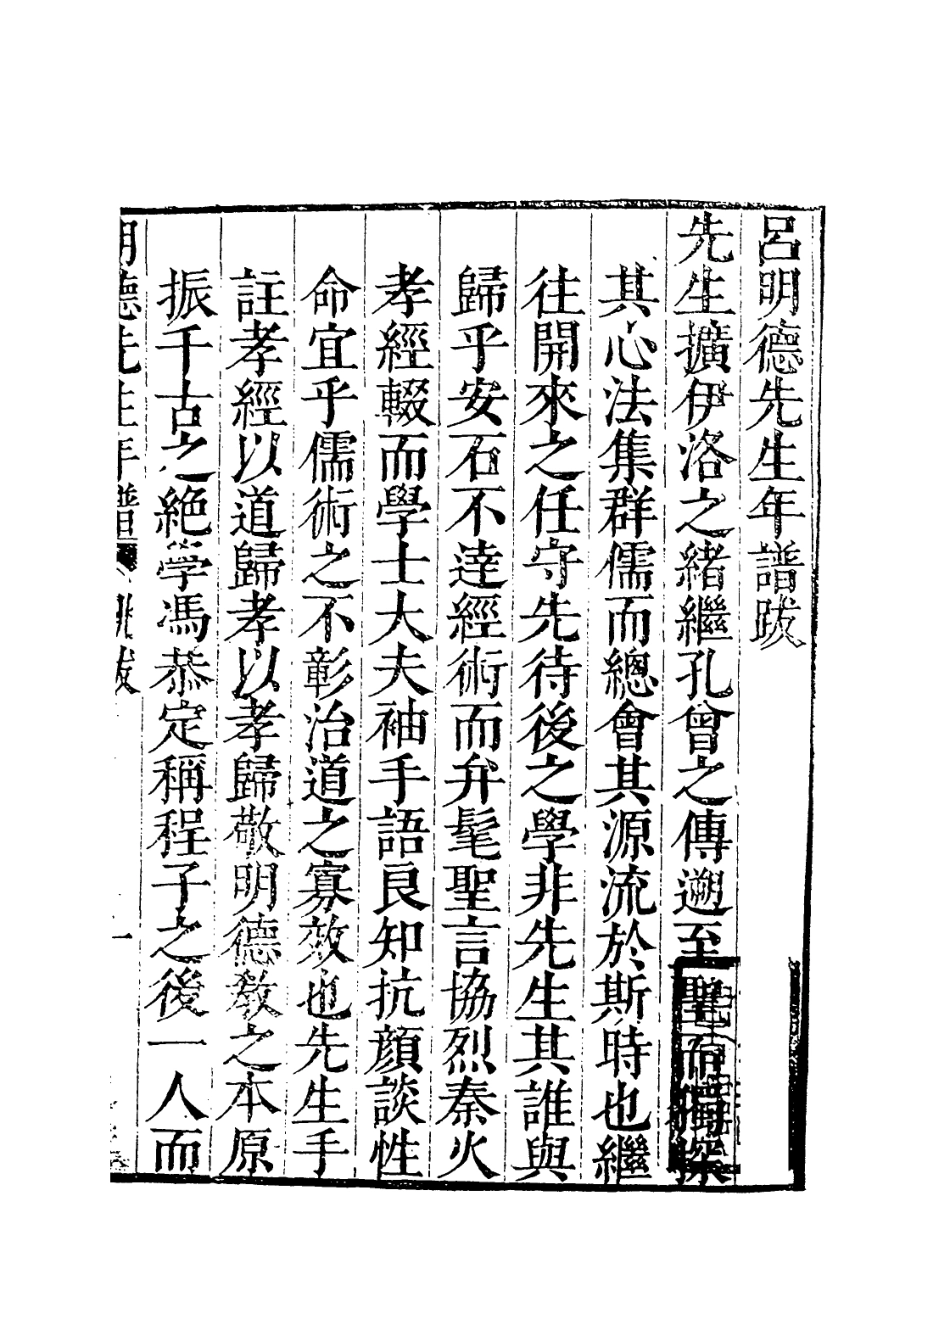 呂明德先生年譜跋
先生擴伊洛之緒繼孔曾之傳遡至聖而獨深
其心法集群儒而總會其源流於斯時也繼
往開來之任守先待後之學非先生其誰與
歸乎安石不逹經術而弁髦聖言協烈秦火
孝經輟而學士大夫袖手語良知抗顔談性
命宜乎儒術之不彰治道之寡效也先生手
註孝經以道歸孝以孝歸敬明德敎之本原
振千古之絶學馮恭定稱程子之後一人而
明德先生年譜 跋 一